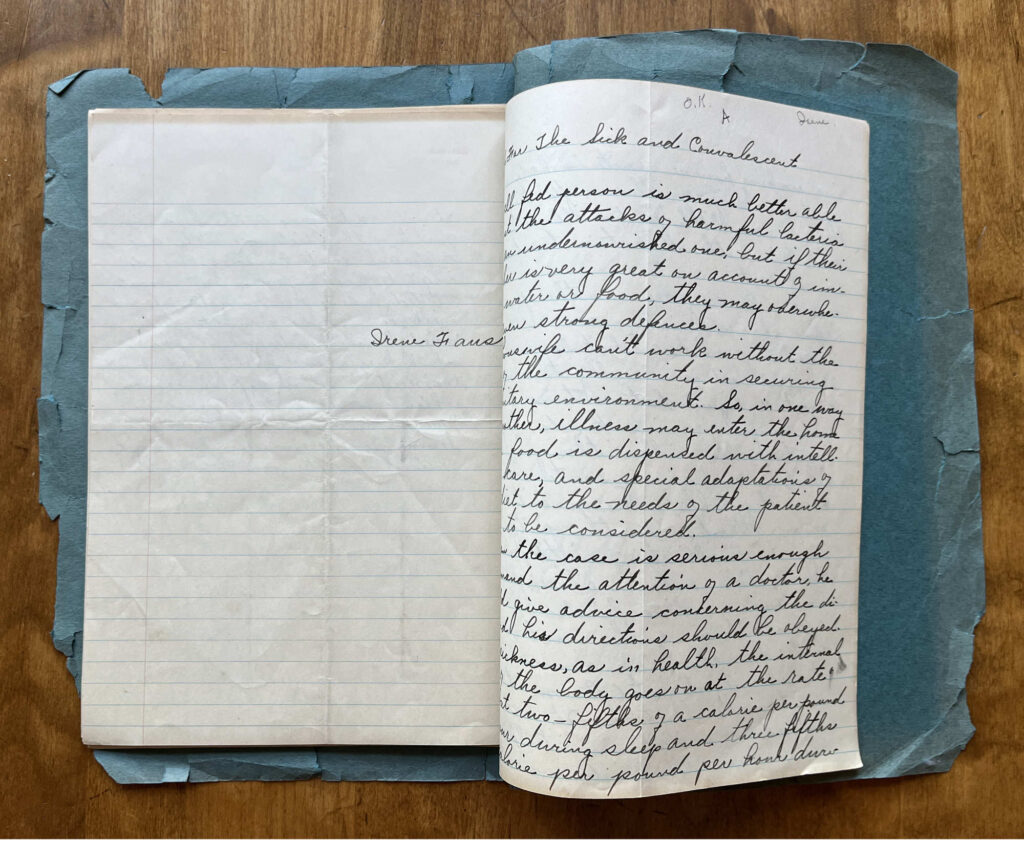 Irene Faus
O.K.
A
Irene
For The Sick and Convalescent
ll fed person is much better able
t the attacks of harmful bacteria
n undernourished one, but if their
ber is very great on account of im-
water or food, they may overwhe-
ven strong defences.
ousewife can't work without the
of the community in securing
itary environment. So, in one way
other, illness may enter the home
food is dispensed with intelli-
care, and special adaptations of
diet to the needs of the patient
to be considered.
n the case is serious enough
mand the attention of a doctor, he
d give advice concerning the di-
d his directions should be obeyed.
sickness, as in health, the internal
of the body goes on at the rate
ut two-fifths of a calorie per pound
our during sleep and three fifths
calorie per pound per hour duri-